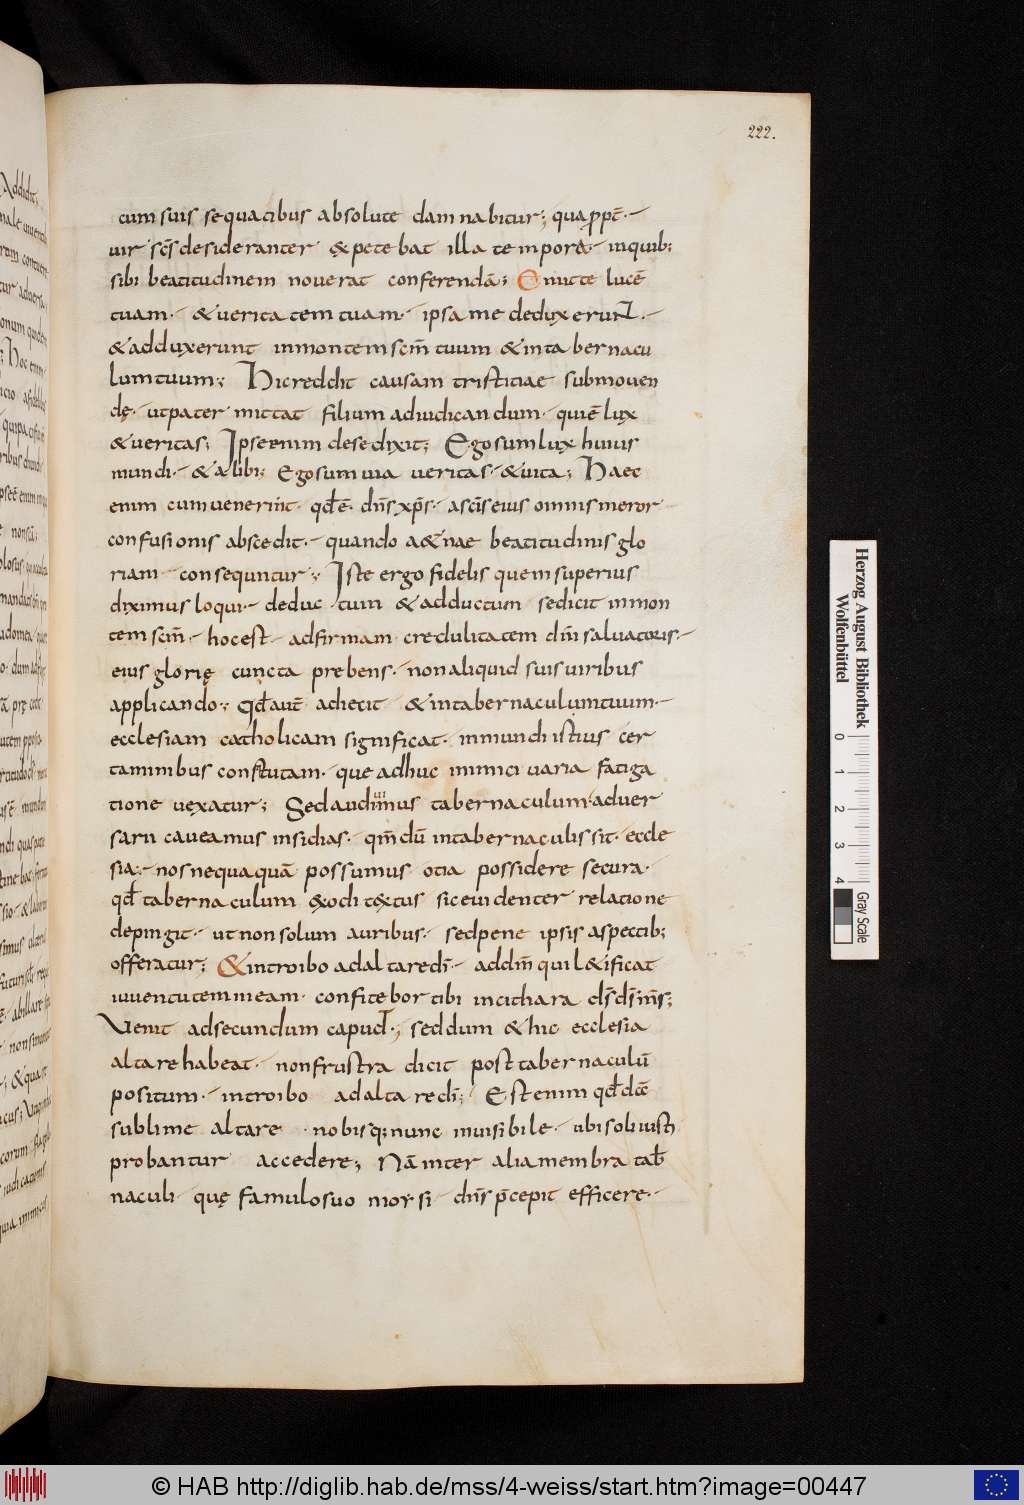 222.
cum suis sequacibus absolute damnabitur; quapropt̄.
uir sc̄s desideranter expetebat illa tempora. inquib;
sibi beatitudinem nouerat conferendā; Emitte lucē
tuam. & ueritatem tuam. ipsa me deduxerunt.
& adduxerunt inmontem sc̄m tuum & inta bernacu
lum tuum; Hic reddit causam tristitiae submouen
dę. ut pater mittat filium adiudicandum. qui ē lux
& ueritas; Ipse enim de se dixit; Ego sum lux huius
mundi. & alibi; Ego sum uia ueritas. & uita; Haec
enim cum uenerint. qđ ē. dn̄s xp̄s. a sc̄is eius omnis meror
confusionis abscedit. quando a&nae beatitudinis glo
riam consequntur; Iste ergo fidelis quem superius
diximus loqui. deductum & adductum se dicit inmon
tem sc̄m. hoc est adfirmam credulitatem dn̄i saluatoris.
eius glorię cuncta prebens. non aliquid suis uiribus
applicando; Qđ aut̄ adiecit & intabernaculum tuum.
ecclesiam catholicam significat. inmundi istius cer
taminibus constutam. que adhuc inimici uaria fatiga
tione uexatur; Sed audiuimus tabernaculum. aduer
sarii caueamus insidias. qm̄ dū intabernaculis sit. eccle
sia. nos nequaquā possumus otia possidere secura.
qđ tabernaculum exodi textus sic euidenter relatione
depingit. ut non solum auribus. sed pene ipsis aspectib;
offeratur; & introibo ad altare dī. ad dm̄ qui l&ificat
iuuentutem meam. confitebor tibi incithara ds̄ ds̄ ms̄;
Uenit ad secundum capud.; sed dum & hic ecclesia
altare habeat. non frustra dicit post tabernaculū
positum. introibo ad altare dī; Est enim qđdā
sublime altare nobisq; nunc inuisibile. ubi soli iusti
probantur accedere; Nā inter alia membra tab̄
naculi quę famulo suo morsi dn̄s p̄cepit efficere.
Herzog August Bibliothek
Wolfenbüttel
0 1 2 3 4
Gray Scale
© HAB http://diglib.hab.de/mss/4-weiss/start.htm?image=00447